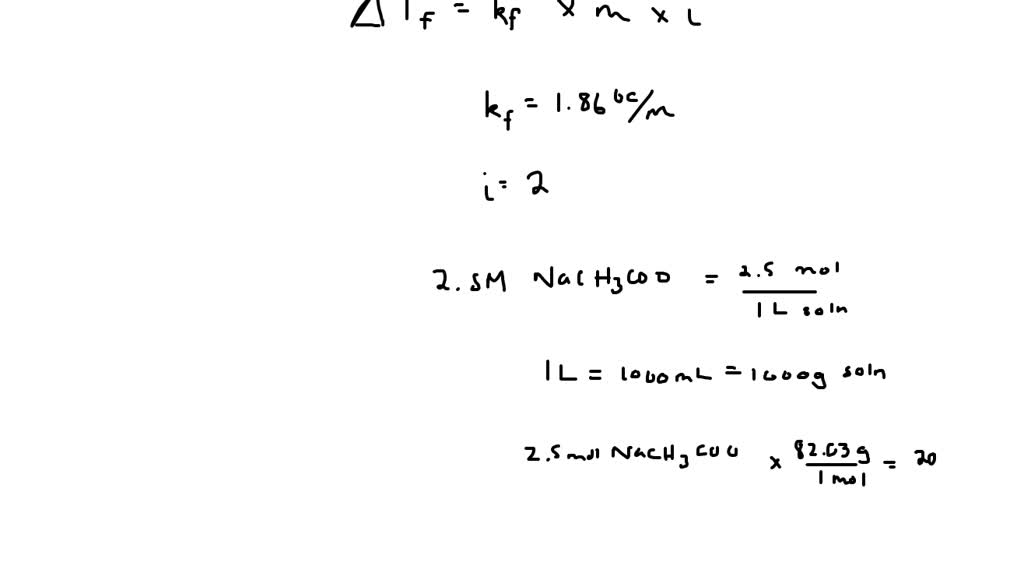 ΔTf = kf × m × i
kf = 1.86 °C/m
i = 2
2.5M NaCH3COO = 2.5 mol / 1 L soln
1L = 1000mL = 1000g soln
2.5 mol NaCH3COO × 82.03 g / 1 mol = 20